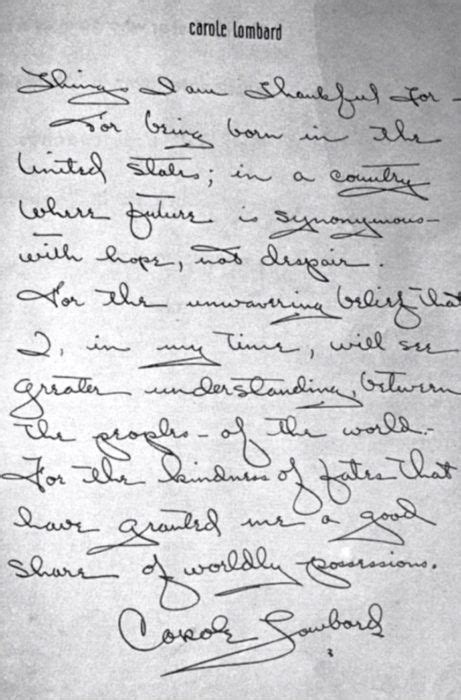 carole lombard
Things I am thankful for -
For being born in the
United States; in a country
where future is synonymous -
with hope, not despair.
For the unwavering belief that
I, in my time, will see
greater understanding, between
the peoples - of the world. -
For the kindness of fates that
have granted me a good
share of worldly possessions.
Carole Lombard